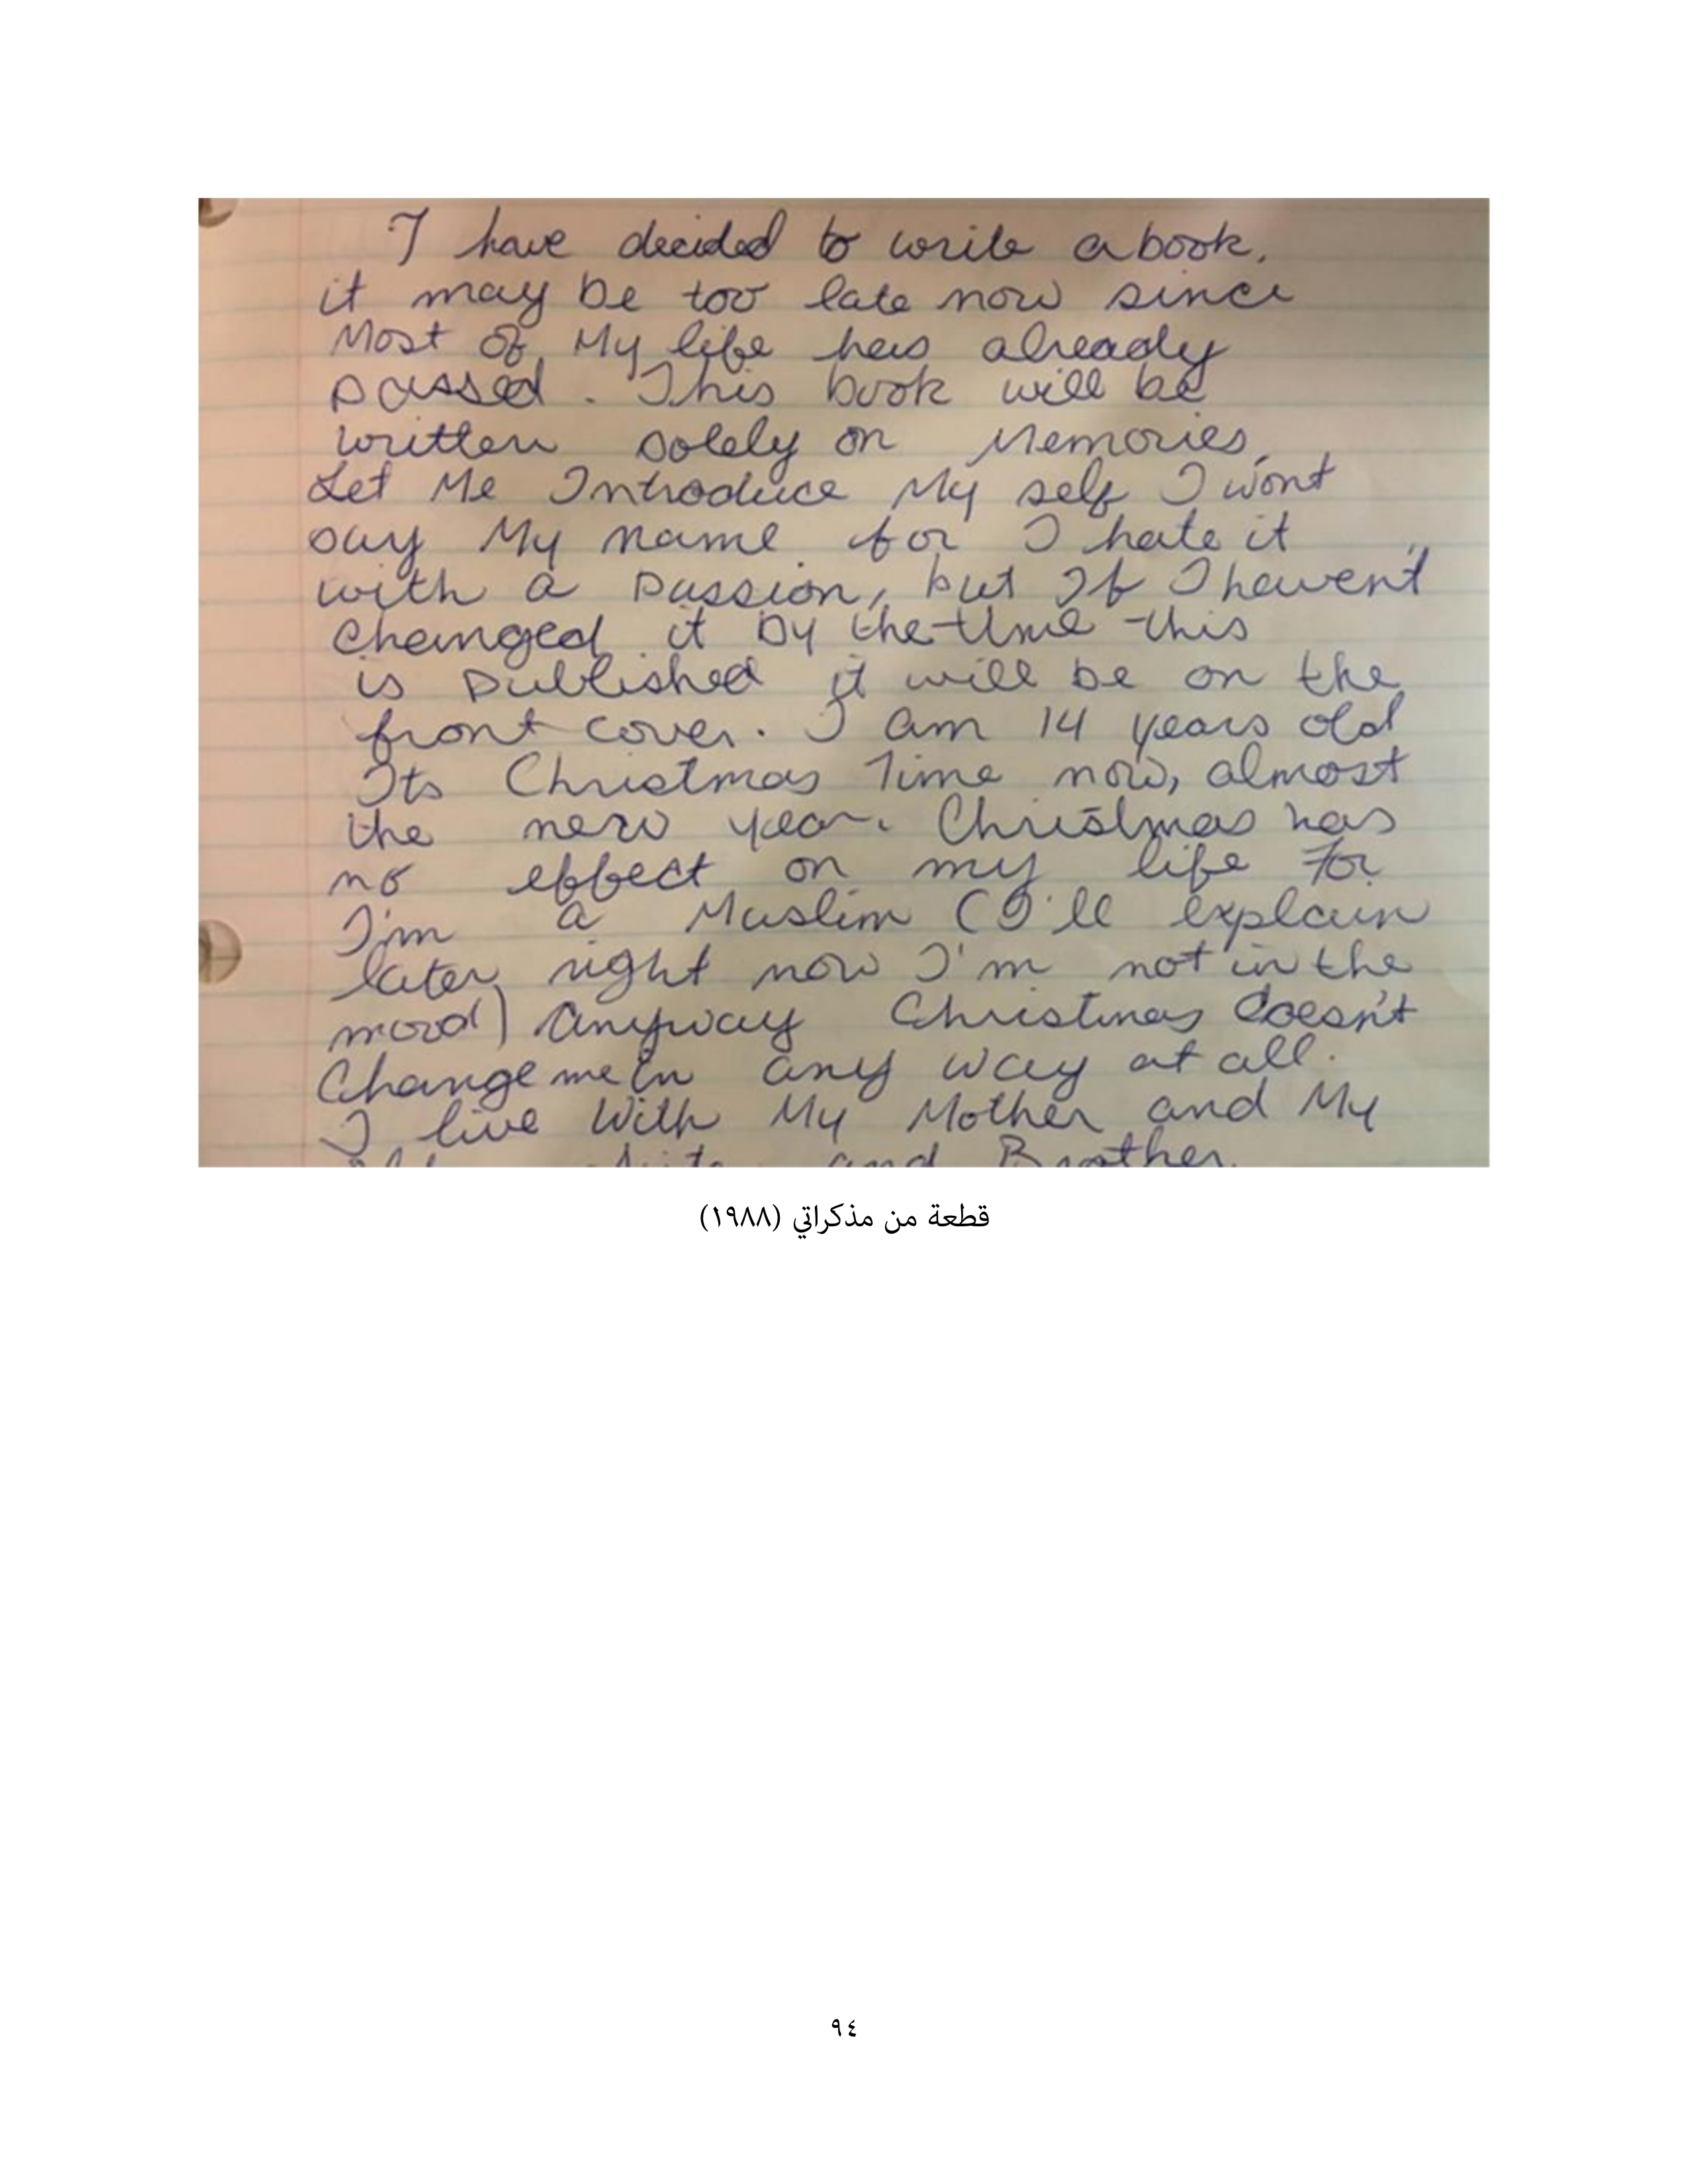 I have decided to write a book.
it may be too late now since
Most of My life has already
passed. This book will be
written solely on Memories.
Let Me Introduce My self I wont
say My name for I hate it
with a passion, but If I havent
changed it by the time this
is published it will be on the
front cover. I am 14 years old
Its Christmas Time now, almost
the new year. Christmas has
no effect on my life For
I'm a Muslim (I'll explain
later right now I'm not in the
mood) Anyway Christmas doesn't
Change me In any way at all.
I live With My Mother and My
and Brother
قطعة من مذكراتي (١٩٨٨)
٩٤